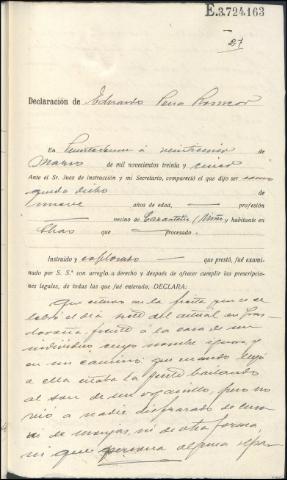 E.3.724.163
27
Declaración de Eduardo Pena
En Puenteareas á veintiseis de
Marzo de mil novecientos treinta y cinco
Ante el Sr. Juez de instrucción y mi Secretario, compareció el que dijo ser como
queda dicho de
años de edad, profesión
vecino de y habitante en
que procesado.
Instruído y exhortado que prestó, fué exami-
nado por S. S.ª con arreglo a derecho y después de ofrecer cumplir las prescripciones
legales, de todas las que fué enterado, DECLARA:
Que estuvo en la fiesta que se ce-
lebró el día siete del actual en
frente á la casa de un
individuo cuyo nombre ignora y
en un camino; que cuando llegó
a ella estaba la gente bailando
al son de un organillo, pero no
vió a nadie disfrazado de curas
ni de monjas, ni de otra forma,
ni que persona alguna